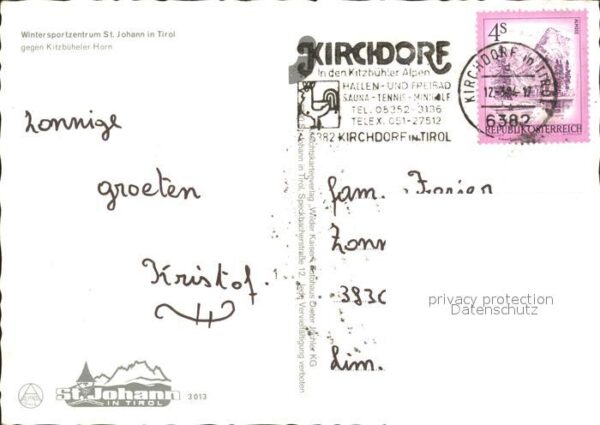 Wintersportzentrum St. Johann in Tirol
gegen Kitzbüheler Horn
zonnige
groeten
Kristof.
St. Johann
IN TIROL
3013
KIRCHDORF
in den Kitzbühler Alpen
HALLEN- UND FREIBAD
SAUNA-TENNIS-MINIGOLF
TEL. 05352-3136
TELEX. 051-27512
A-6382 KIRCHDORF IN TIROL
4S
ALMSEE
REPUBLIK ÖSTERREICH
KIRCHDORF in TIROL
6382
Ansichtskartenverlag „Wilder Kaiser", Fotohaus Dieter KG
St. Johann in Tirol, Speckbacherstraße 12. Jede Vervielfältigung verboten
fam.
privacy protection
Datenschutz